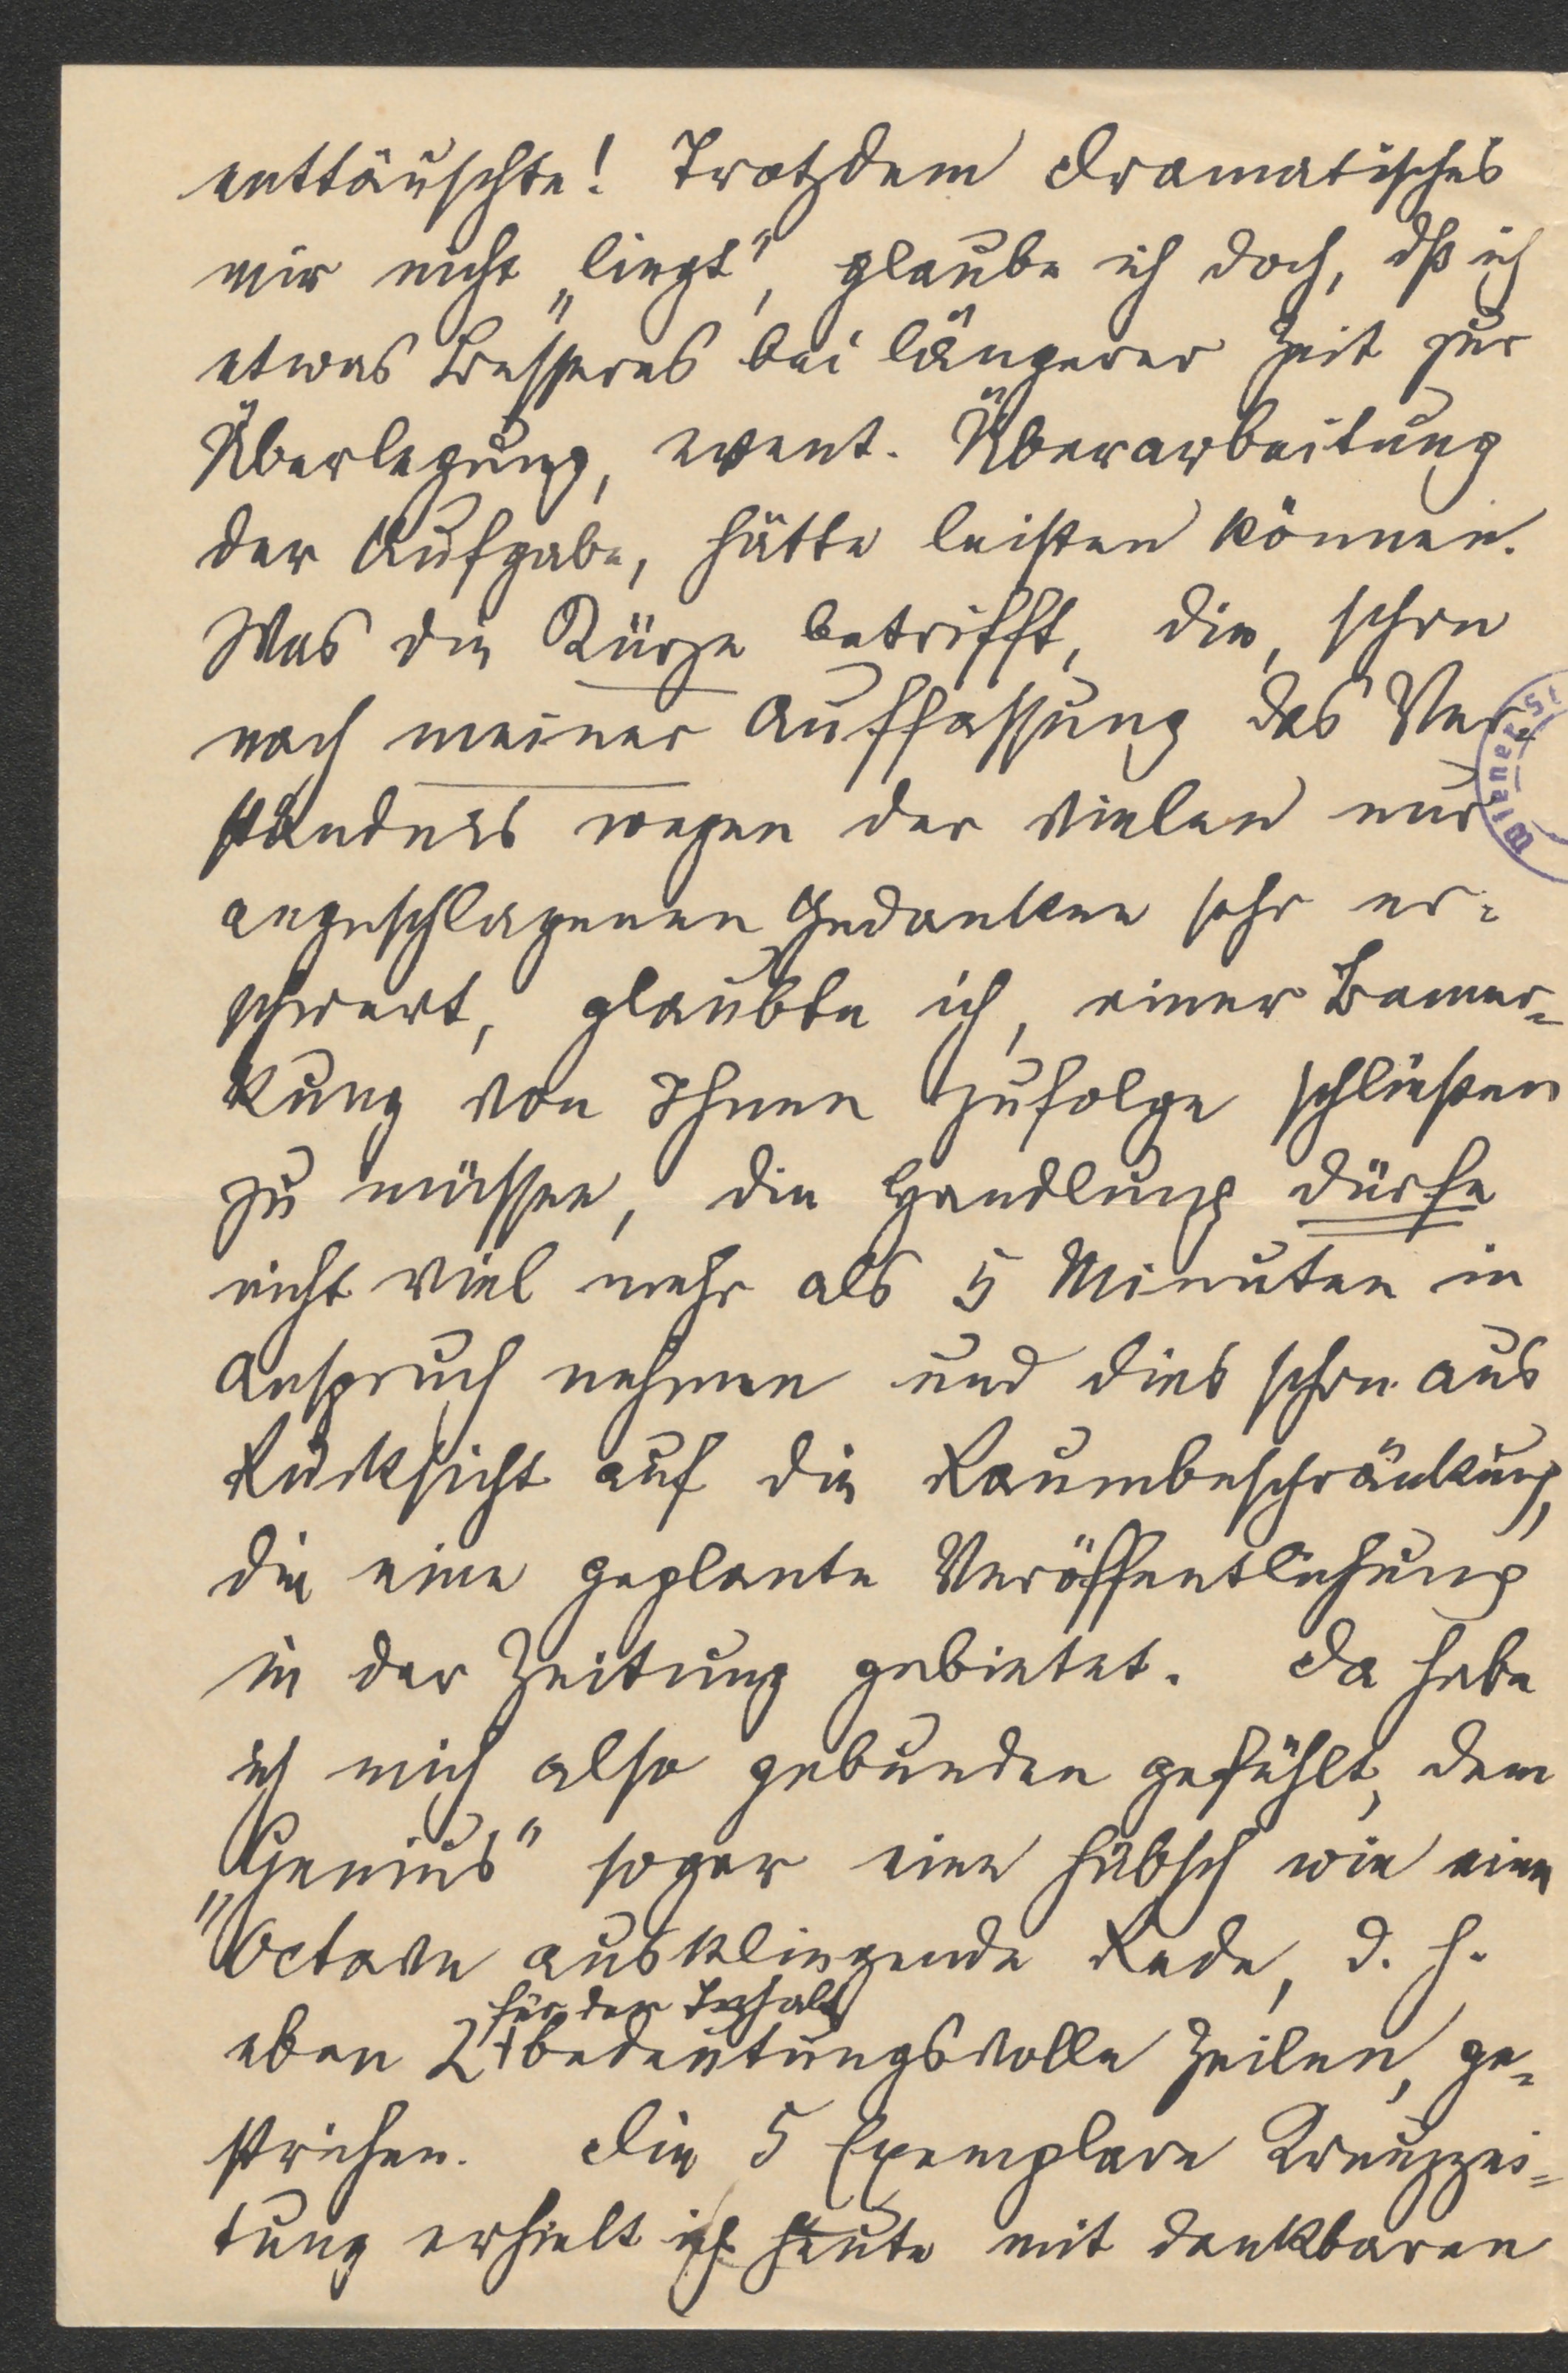 enttäuschte! Trotzdem Dramatisches
mir nicht „liegt", glaube ich doch, dß ich
etwas Besseres bei längerer Zeit zur
Überlegung, event. Überarbeitung
der Aufgabe, hätte leisten können.
Was die Kürze betrifft, die, schon
nach meiner Auffassung das Ver-
ständnis wegen der vielen nur
angeschlagenen Gedanken sehr er-
schwert, glaubte ich, einer Bemer-
kung von Ihnen zufolge schließen
zu müssen, die Handlung dürfe
nicht viel mehr als 5 Minuten in
Anspruch nehmen und dies schon aus
Rücksicht auf die Raumbeschränkung,
die eine geplante Veröffentlichung
in der Zeitung gebietet. Da habe
ich mich also gebunden gefühlt, dem
„Genius" sogar eine hübsch wie eine
Octave ausklingende Rede, d. h.
für den Inhalt
eben 2 + bedeutungsvolle Zeilen, ge-
strichen. Die 5 Exemplare Kreuzzei-
tung erhielt ich heute mit dankbaren
Wiener St